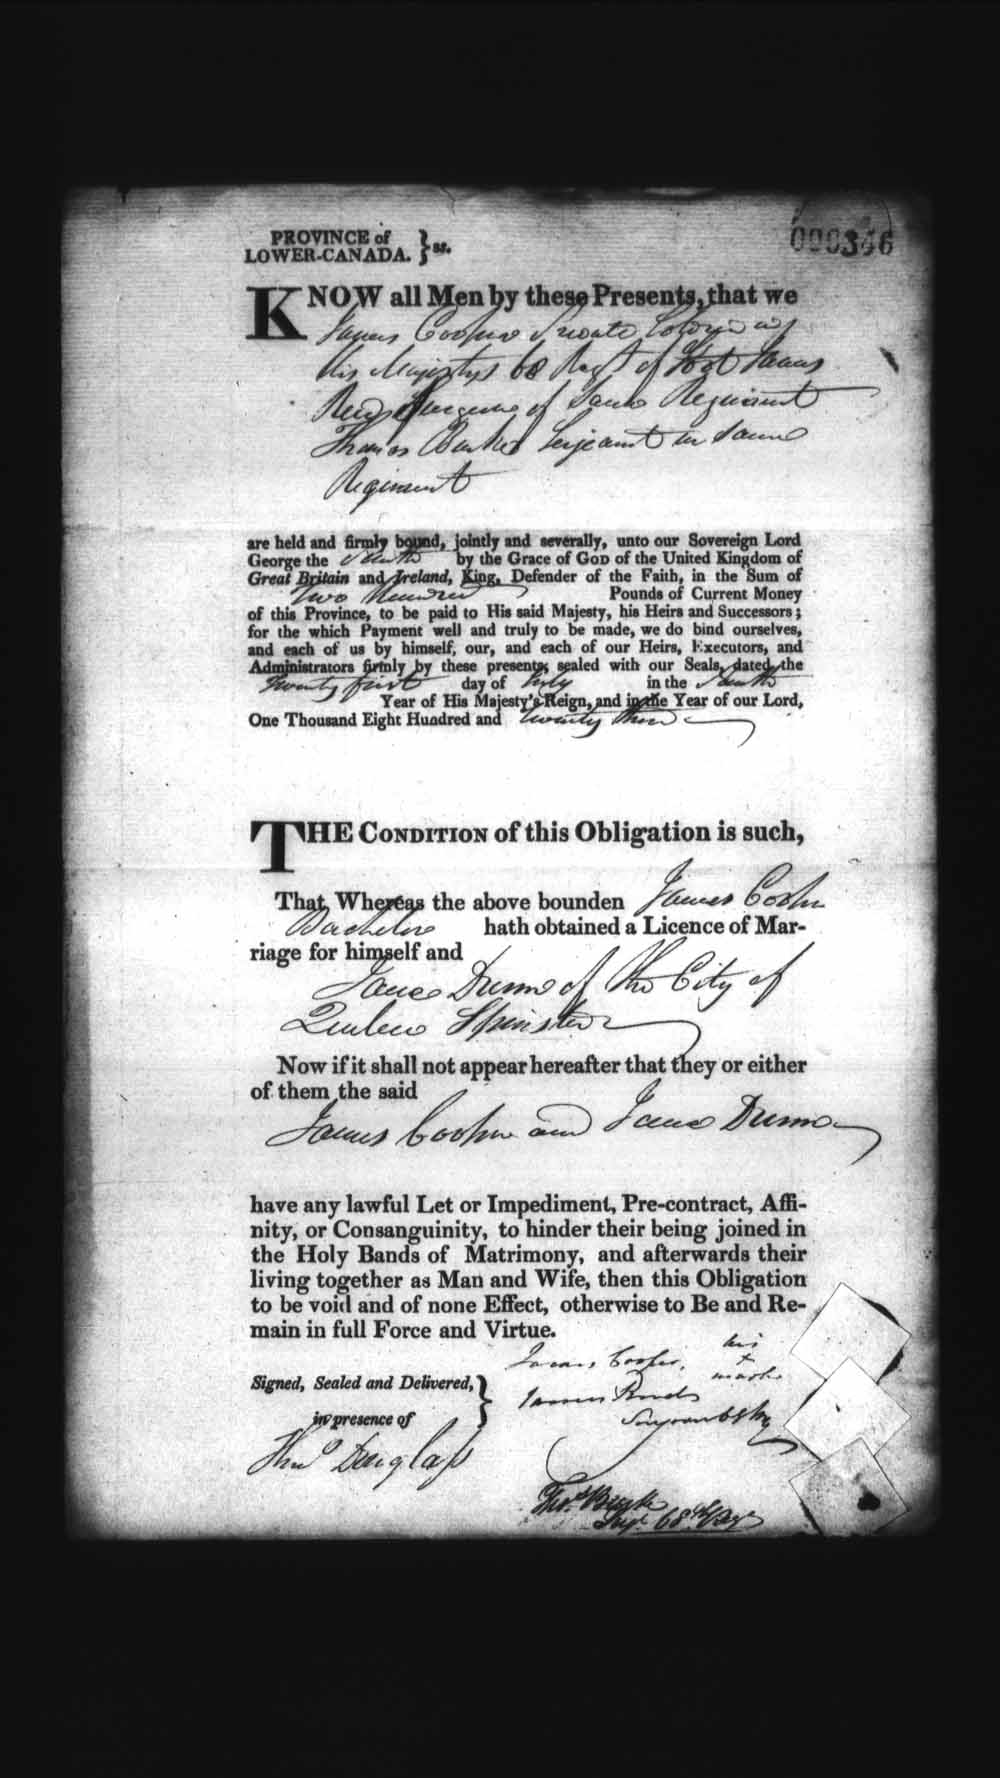 PROVINCE of
LOWER-CANADA. } ss.
000346
KNOW all Men by these Presents, that we
James Cooper Private
His Majestys 68 Regt of Foot James
of Same Regiment
Thomas Serjeant in same
Regiment
are held and firmly bound, jointly and severally, unto our Sovereign Lord
George the Fourth by the Grace of GOD of the United Kingdom of
Great Britain and Ireland, King, Defender of the Faith, in the Sum of
Two Hundred Pounds of Current Money
of this Province, to be paid to His said Majesty, his Heirs and Successors;
for the which Payment well and truly to be made, we do bind ourselves,
and each of us by himself, our, and each of our Heirs, Executors, and
Administrators firmly by these presents, sealed with our Seals, dated the
Twenty first day of July in the Fourth
Year of His Majesty's Reign, and in the Year of our Lord,
One Thousand Eight Hundred and twenty three
THE CONDITION of this Obligation is such,
That Whereas the above bounden James Cooper
Bachelor hath obtained a Licence of Mar-
riage for himself and
Jane Dunn of the City of
Quebec Spinster
Now if it shall not appear hereafter that they or either
of them the said
James Cooper and Jane Dunn
have any lawful Let or Impediment, Pre-contract, Affi-
nity, or Consanguinity, to hinder their being joined in
the Holy Bands of Matrimony, and afterwards their
living together as Man and Wife, then this Obligation
to be void and of none Effect, otherwise to Be and Re-
main in full Force and Virtue.
James Cooper, his
x
mark
Signed, Sealed and Delivered,
James
in presence of
Thos Douglass
Thos
Serjt 68th Regt